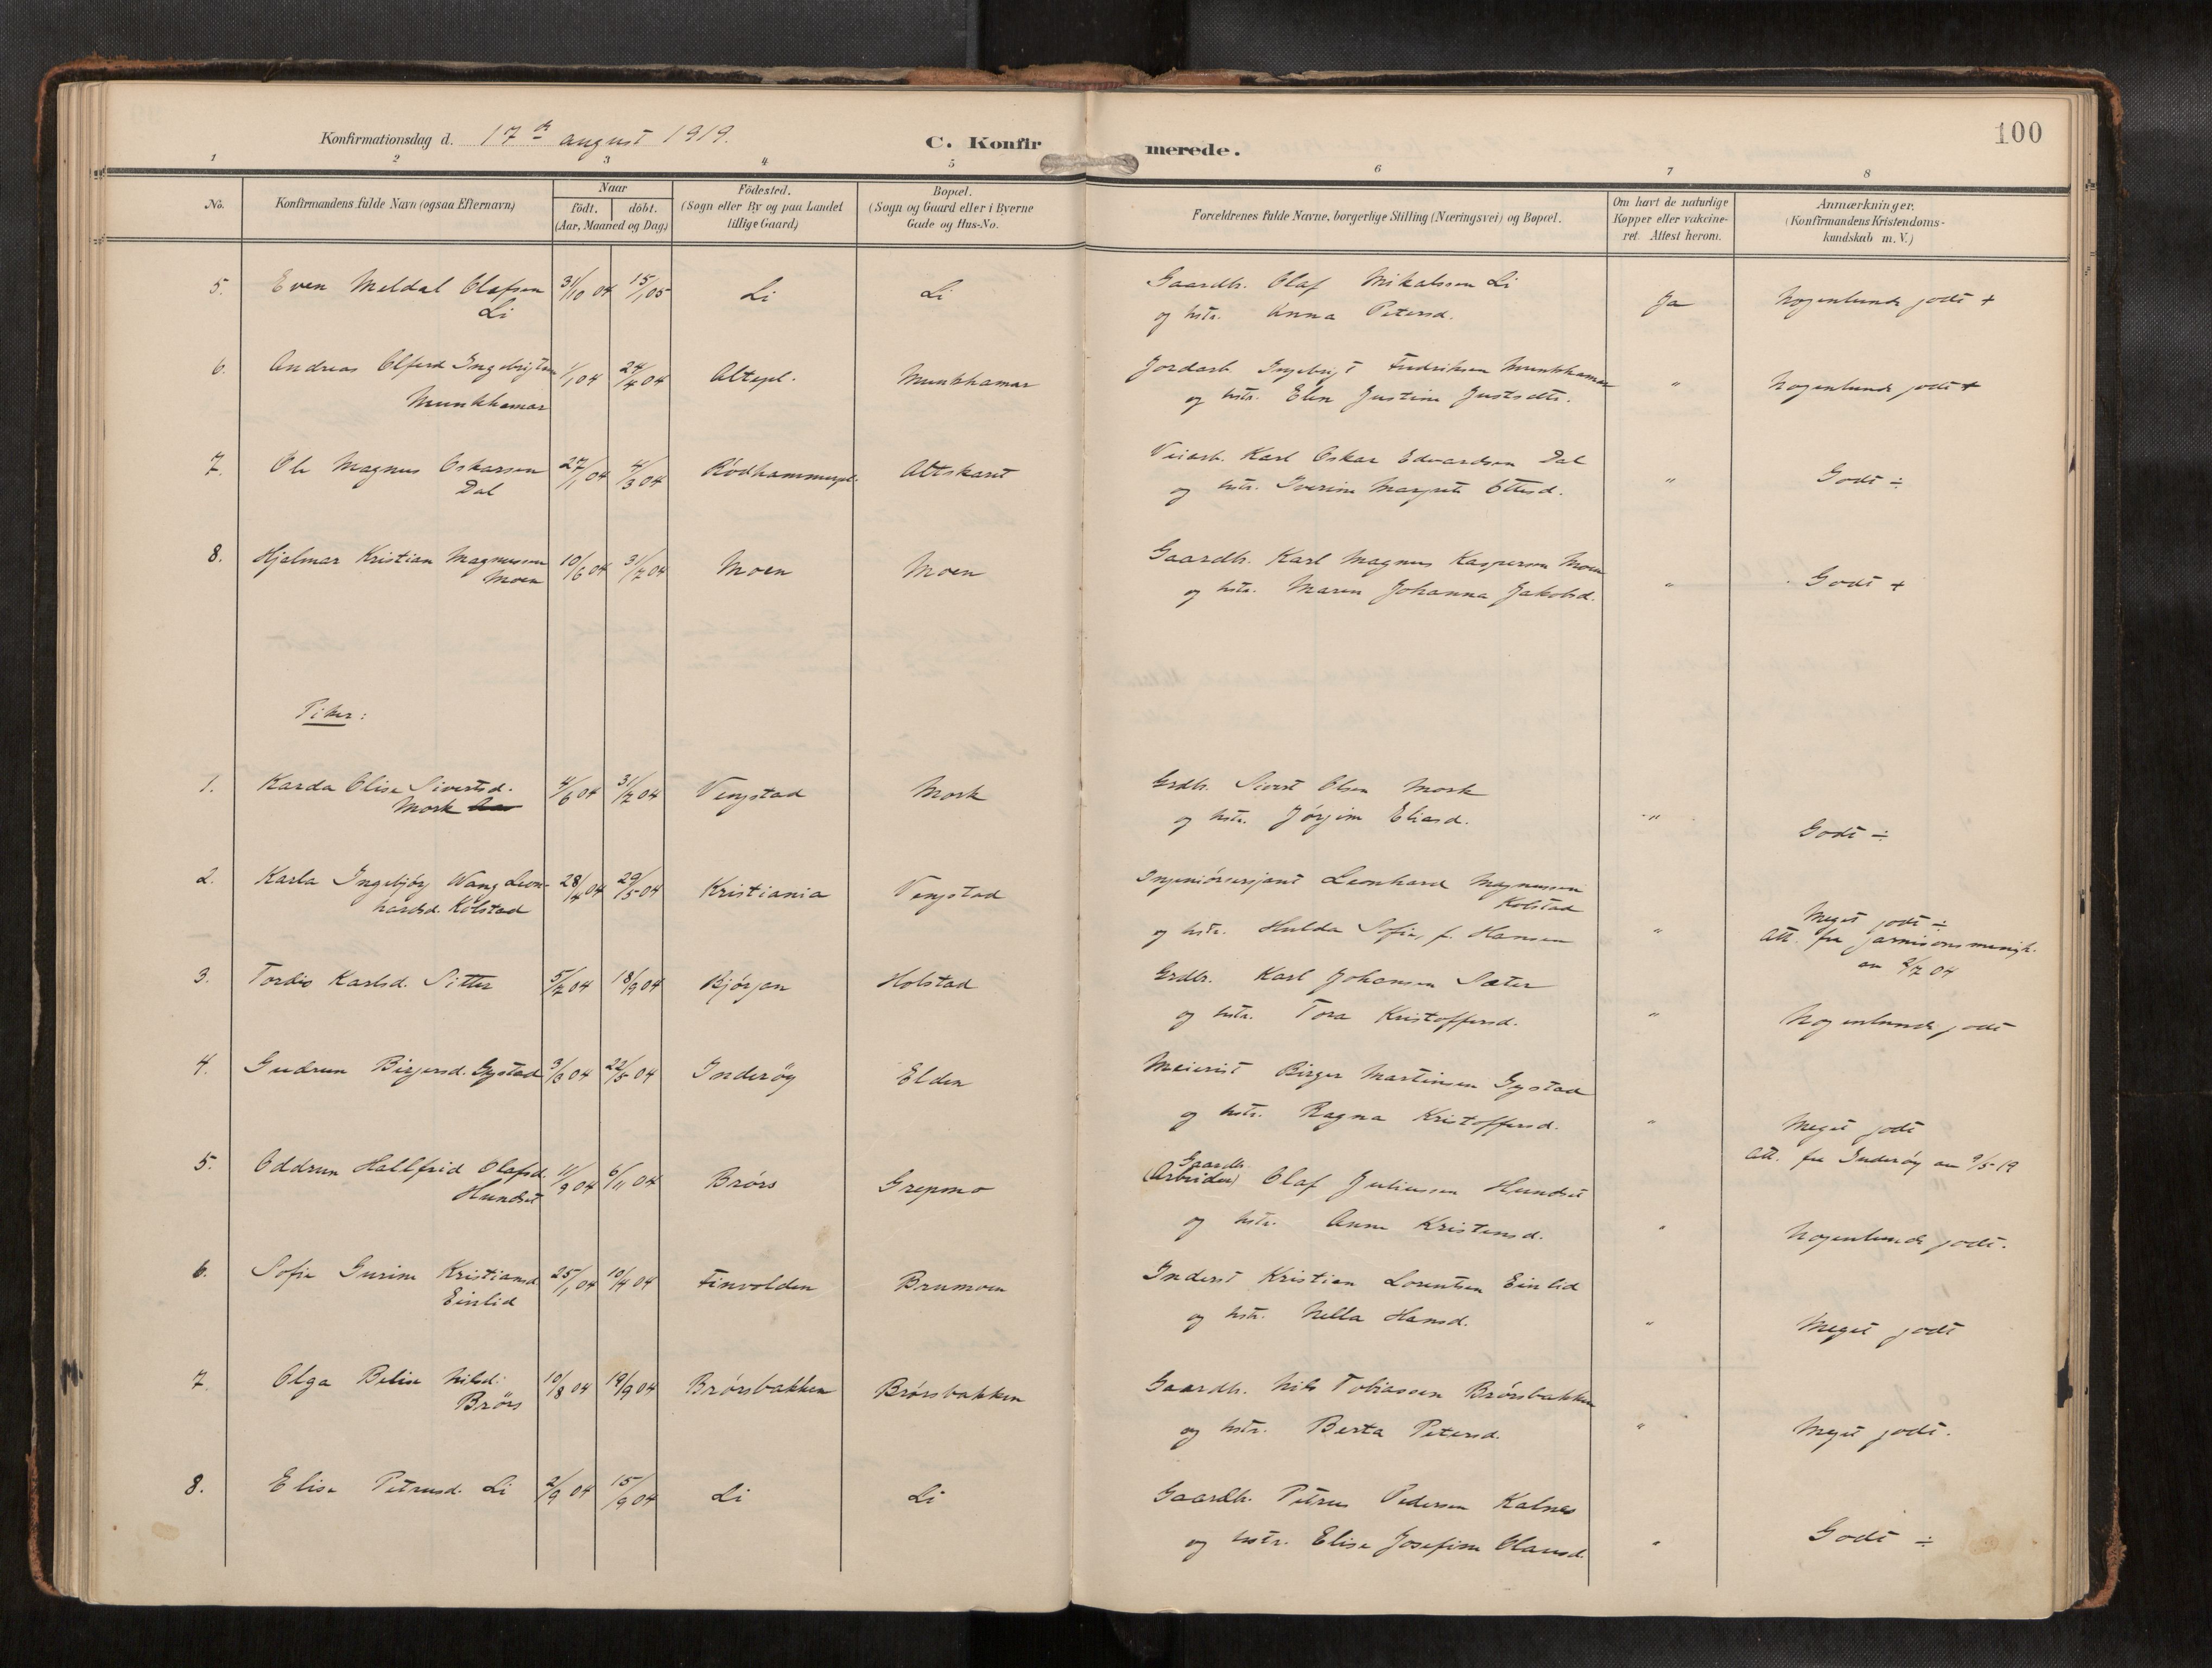 100
Konfirmationsdag d. 17de august 1919.
C. Konfirmerede.
1 2 3 4 5 6 7 8
No.
Konfirmandens fulde Navn (ogsaa Efternavn)
Naar
födt. döbt.
(Aar, Maaned og Dag)
Födested.
(Sogn eller By og paa Landet
tillige Gaard)
Bopæl.
(Sogn og Gaard eller i Byerne
Gade og Hus-No.
Forældrenes fulde Navne, borgerlige Stilling (Næringsvei) og Bopæl.
Om havt de naturlige
Kopper eller vakcine-
ret. Attest herom.
Anmærkninger.
(Konfirmandens Kristendoms-
kundskab m. V.)
5. Even Meldal Olafsen 31/10 04 15/1 05 Li Li Gaardbr. Olaf Mikalssen Li Ja Nogenlunde godt +
Li og hstr. Anna Petersd.
6. Andreas Olferd Ingebrigtsen 1/1 04 24/4 04 Altepl. Munkhamar Jordarb. Ingebrigt Fredriksen Munkhamar " Nogenlunde godt +
Munkhamar og hstr. Elen Justine Justsdtr.
7. Ole Magnus Oskarsen 27/1 04 4/3 04 Rödhammerpl. Altskaret Veiarb. Karl Oskar Edvardsen Dal " Godt ÷
Dal og hstr. Iverine Margrete Ottesd.
8. Hjalmar Kristian Magnussen 10/6 04 31/7 04 Moen Moen Gaardbr. Karl Magnus Kaspersen Moen " Godt +
Moen og hstr. Maren Johanna Jakobsd.
Piker:
1. Karda Olise Sivertsd. 4/6 04 31/7 04 Vengstad Mork Grdbr. Sivert Olsen Mork " Godt ÷
Mork og hstr. Jørgine Eliasd.
2. Karla Ingebjörg Wang Leon- 28/4 04 29/5 04 Kristiania Vengstad Ingeniörsersjant Leonhard Magnussen
hardsd. Kolstad Kolstad
og hstr. Hulda Sofie, f. Hansen " Meget godt ÷
Att. fra garnisonsmenigh.
av 2/7 04
3. Tordis Karlsd. Sitter 5/7 04 18/9 04 Bjørgan Holstad Grdbr. Karl Johansen Sæter
og hstr. Tora Kristoffersd. " Nogenlunde godt
4. Gudrun Birgersd. Gystad 3/3 04 22/5 04 Inderøy Elden Meierist Birger Martinsen Gystad
og hstr. Ragna Kristoffersd. " Meget godt
Att. fra Inderøy av 9/5 19
5. Oddrun Hallfrid Olafsd. 11/9 04 6/11 04 Brørs Grepmo Gaardbr.
(Arbeider) Olaf Juliussen Hundset
Hundset og hstr. Anne Kristensd. " Nogenlunde godt.
6. Sofie Gurine Kristiansd. 25/1 04 10/4 04 Finvolden Brumoen Inderst Kristian Lorentsen Einlid
Einlid og hstr. Nella Hansd. " Meget godt
7. Olga Beline Nilsd. 10/8 04 18/9 04 Brørsbakken Brørsbakken Gaardbr. Nils Tobiassen Brørsbakken
Brørs og hstr. Berta Petersd. " Meget godt.
8. Elise Petrusd. Li 2/9 04 15/9 04 Li Li Gaardbr. Petrus Pedersen Kalnes
og hstr. Elise Josefine Olausd. " Godt ÷